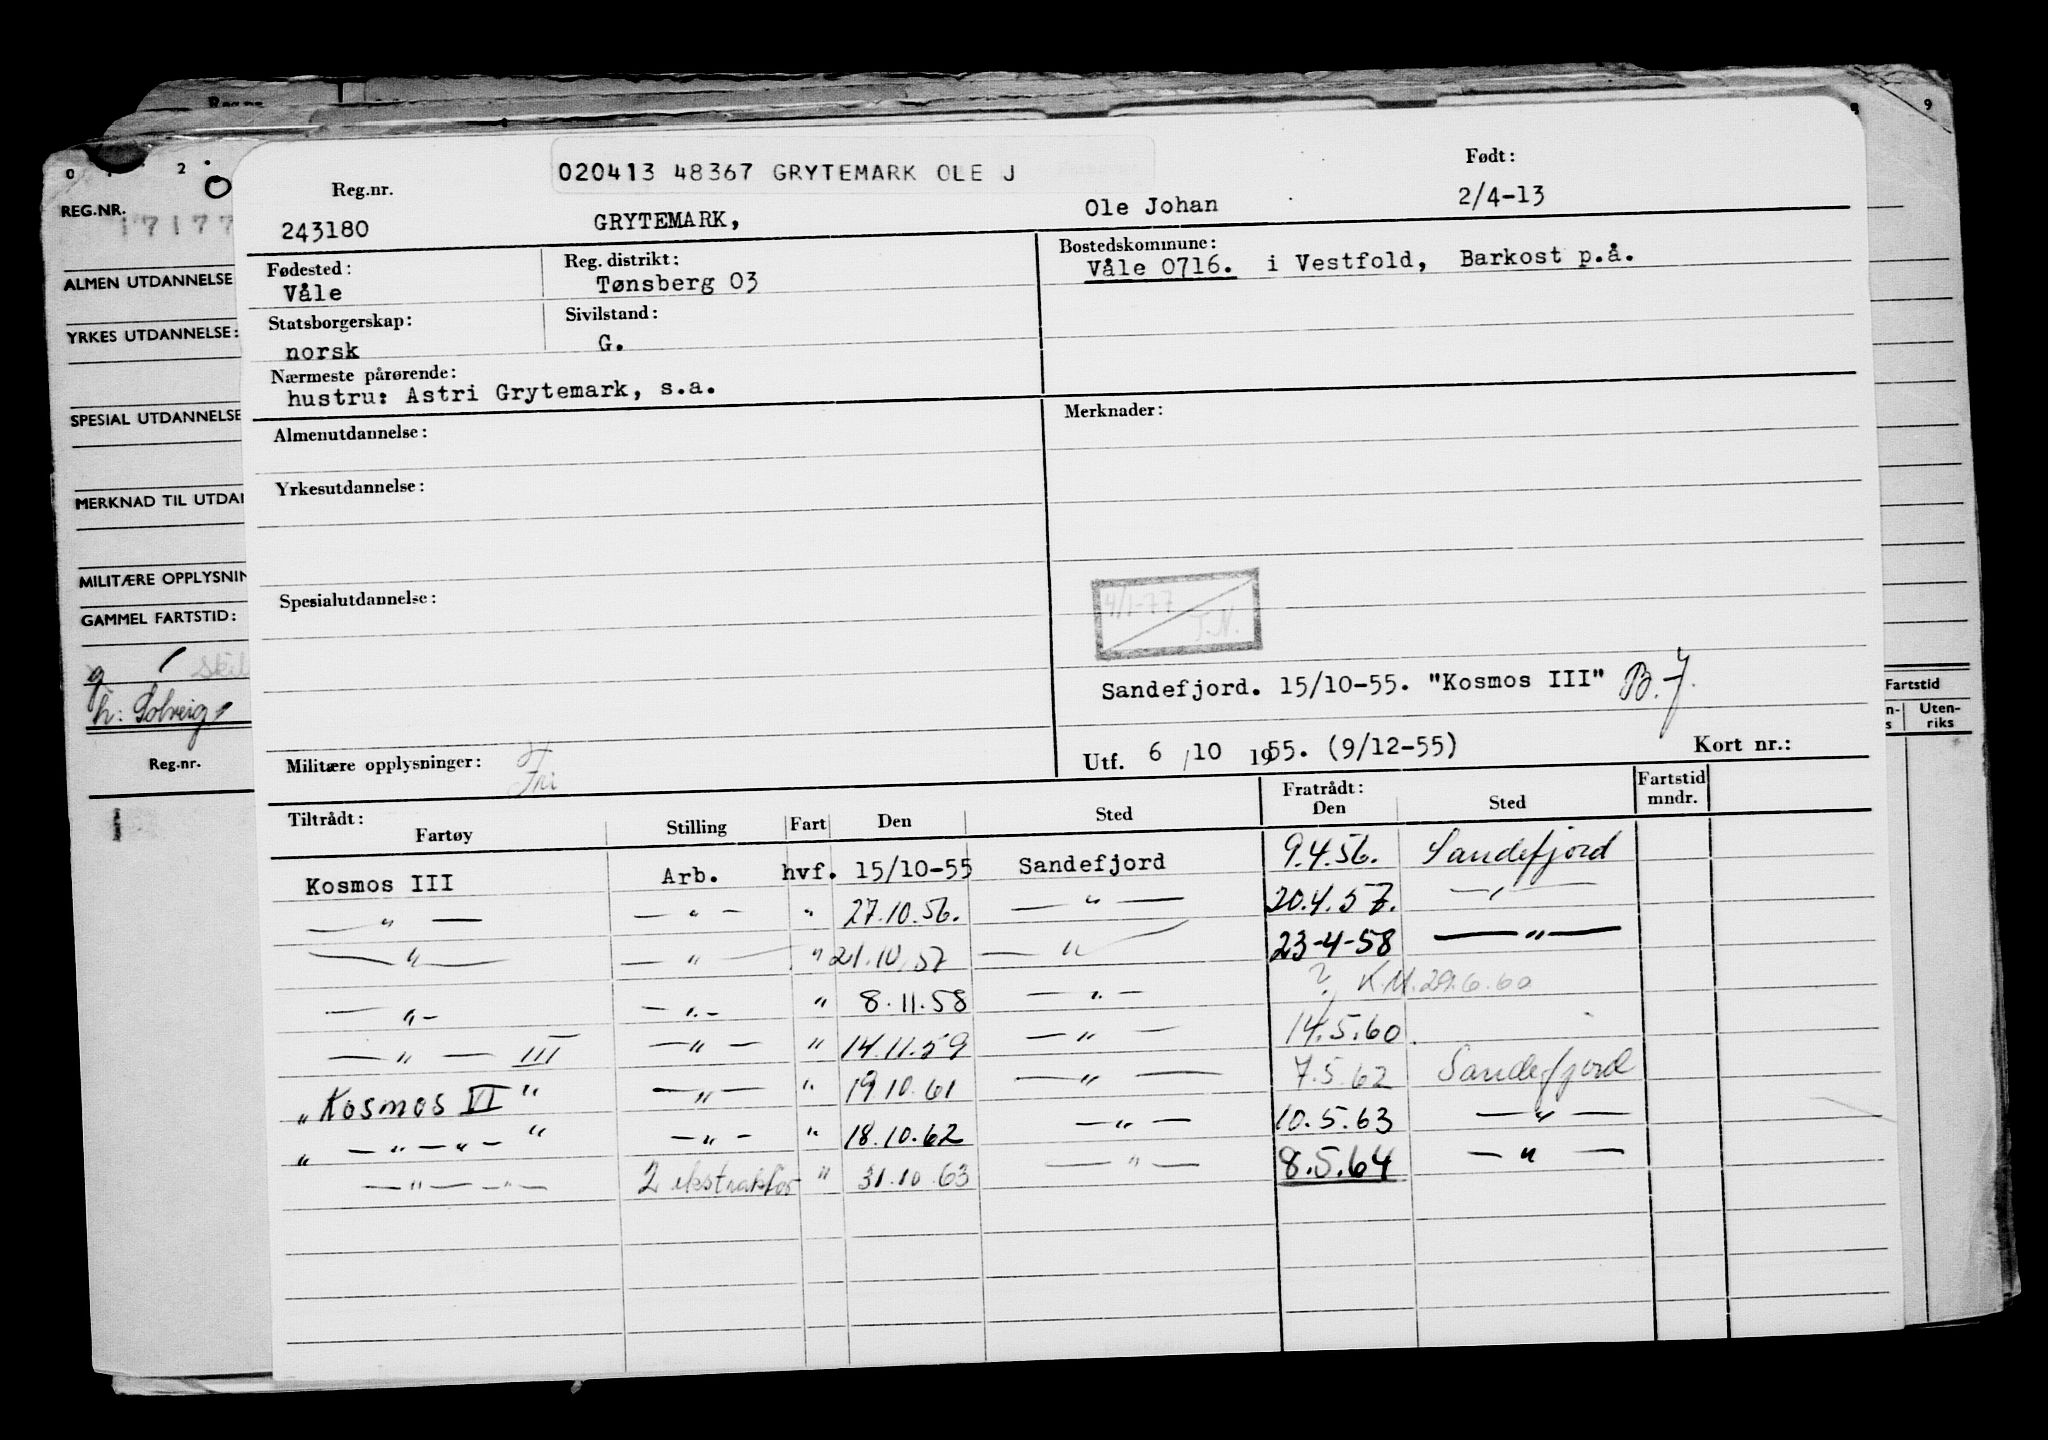 020413 48367 GRYTEMARK OLE J
Reg.nr. Født:
243180 GRYTEMARK, Ole Johan 2/4-13
Fødested: Reg. distrikt: Bostedskommune:
Våle Tønsberg 03 Våle 0716. i Vestfold, Barkost p.å.
Statsborgerskap: Sivilstand:
norsk G.
Nærmeste pårørende:
hustru: Astri Grytemark, s.a.
Almenutdannelse: Merknader:
Yrkesutdannelse:
Spesialutdannelse:
4/1-77
T.N.
Sandefjord. 15/10-55. "Kosmos III" B.J.
Militære opplysninger: Fri
Utf. 6/10 1955. (9/12-55) Kort nr.:
Tiltrådt: Fratrådt: Fartstid
Fartøy Stilling Fart Den Sted Den Sted mndr.
Kosmos III Arb. hvf. 15/10-55 Sandefjord 9.4.56. Sandefjord
— " — — " — " 27.10.56. — " — 20.4.57. — " —
— " — — " — " 21.10.57 — " — 23-4-58 — " —
— " — — " — " 8.11.58 — " — ? K.M.29.6.60
— " — III — " — " 14.11.59 — " — 14.5.60.
" Kosmos VI " — " — " 19.10.61 — " — 7.5.62 Sandefjord
" — " — " — " — " — " 18.10.62 — " — 10.5.63 — " —
— " — " — 2 ekstrakfor " 31.10.63 — " — 8.5.64 — " —
0 2 9
REG.NR.
17177
ALMEN UTDANNELSE
YRKES UTDANNELSE:
SPESIAL UTDANNELSE
MERKNAD TIL UTDAN
MILITÆRE OPPLYSNIN
GAMMEL FARTSTID:
g
h: Solveig
Reg.nr.
Fartstid
Uten-
riks